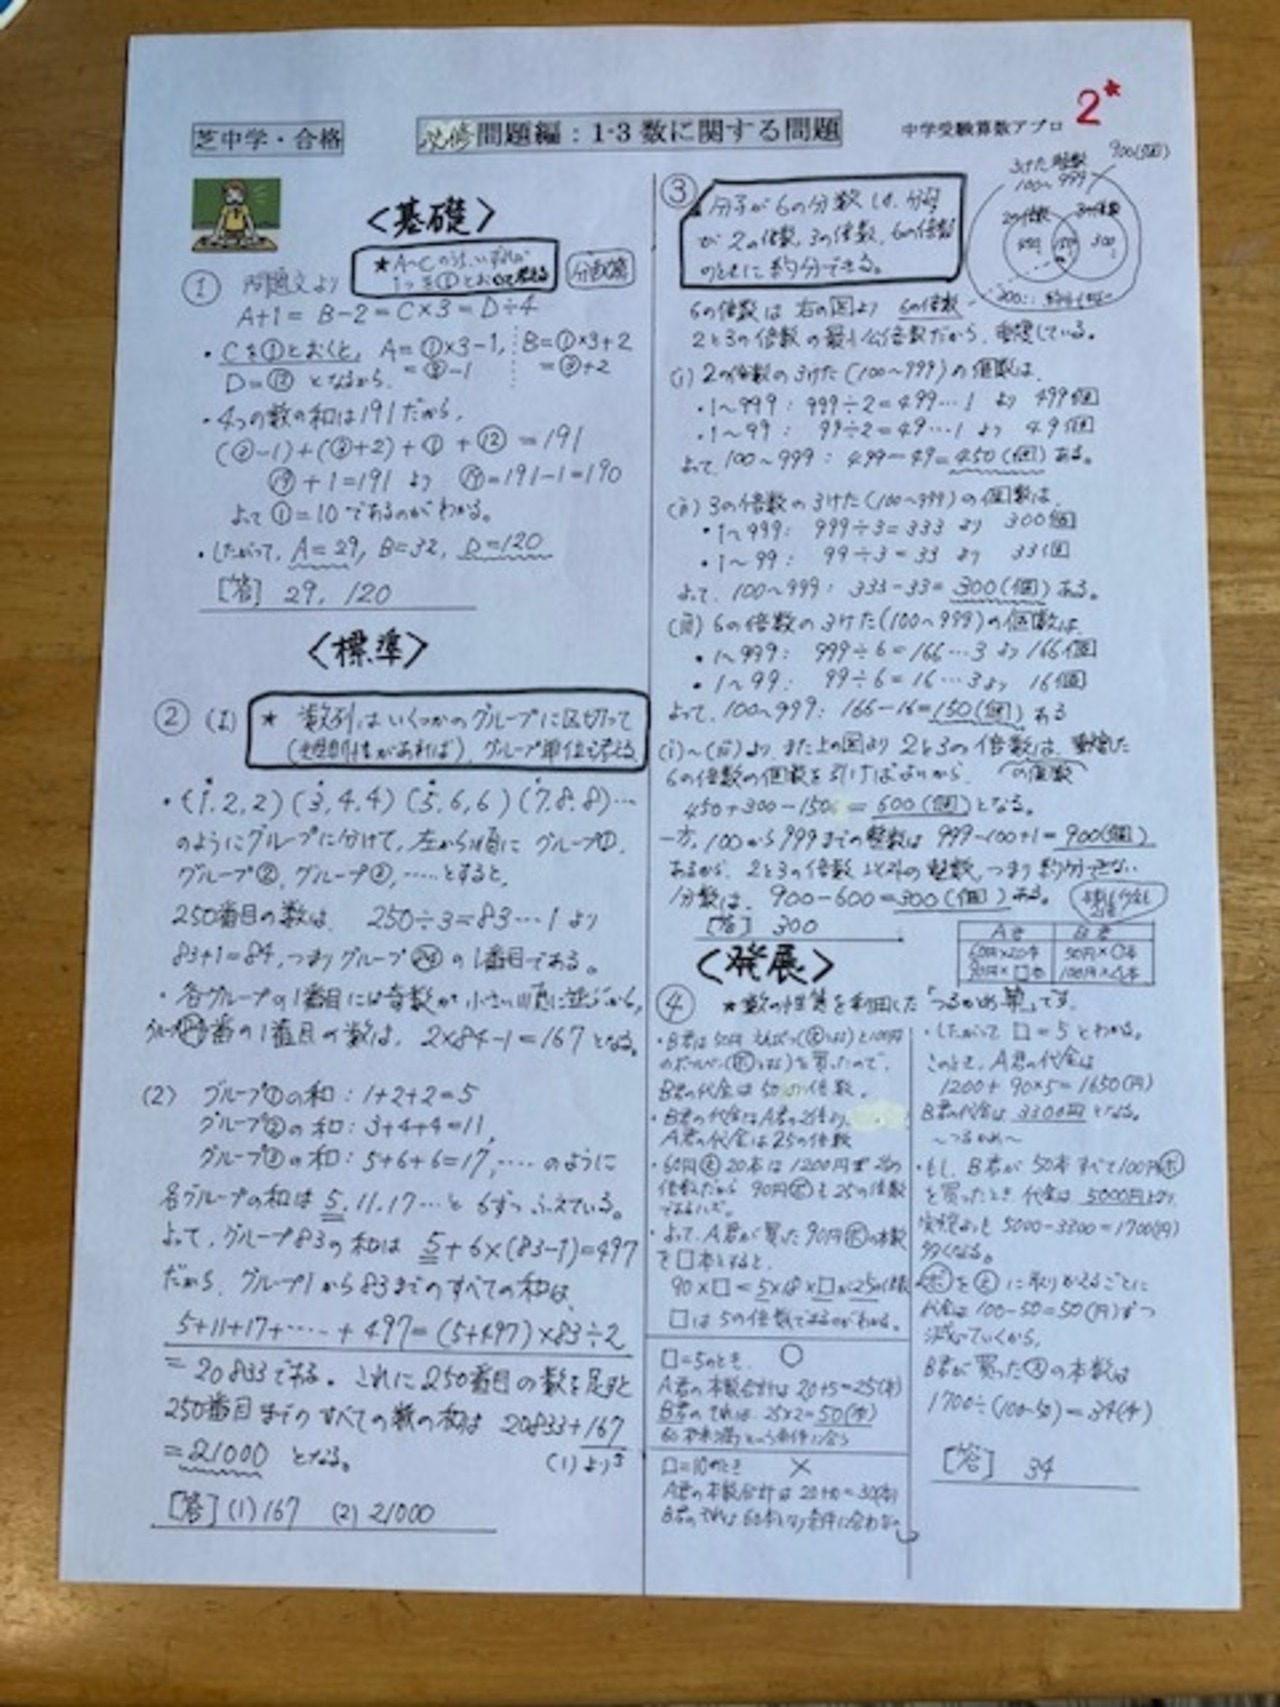 芝中学・合格
必修問題編：1-3 数に関する問題
中学受験算数アプロ
2*
<基礎>
① 問題文より
★A~Cのうち、いずれか
1つを①とおいて考える
A+1=B-2=C×3=D÷4
・Cを①とおくと、A=①×3-1, B=①×3+2
D=⑫ となるから、 =③-1 =③+2
・4つの数の和は191だから、
(③-1)+(③+2)+①+⑫=191
⑲+1=191 より ⑲=191-1=190
よって①=10であるのがわかる。
・したがって、A=29, B=32, D=120
[答] 29, 120
<標準>
② (1) ★ 数列はいくつかのグループに区切って
(規則性があれば)、グループ単位で考える
・(1,2,2)(3,4,4)(5,6,6)(7,8,8)…
のようにグループに分けて、左から順にグループ①、
グループ②、グループ③、……とすると、
250番目の数は、 250÷3=83…1より
83+1=84、つまりグループ84の1番目である。
・各グループの1番目には奇数が小さい順に並ぶから、
グループ84番の1番目の数は、2×84-1=167となる。
(2) グループ①の和：1+2+2=5
グループ②の和：3+4+4=11,
グループ③の和：5+6+6=17,……のように
各グループの和は 5,11,17…と 6ずつふえている。
よって、グループ83の和は 5+6×(83-1)=497
だから、グループ1から83までのすべての和は、
5+11+17+……+497=(5+497)×83÷2
=20833である。これに250番目の数を足すと
250番目までのすべての数の和は 20833+167
=21000 となる。 (1)より
[答](1)167 (2)21000
③ 分子が6の分数は、分母
が2の倍数、3の倍数、6の倍数
のときに約分できる。
3けた整数
100~999
900(個)
2の倍数 3の倍数
450 150 300
6の倍数は右の図より 6の倍数
2と3の倍数の最小公倍数だから、重複している。
(i) 2の倍数の3けた(100~999)の個数は、
・1~999： 999÷2=499…1 より 499個
・1~99： 99÷2=49…1 より 49個
よって、100~999：499-49=450(個)ある。
(ii) 3の倍数の3けた(100~999)の個数は、
・1~999： 999÷3=333 より 300個
・1~99： 99÷3=33 より 33個
よって、100~999：333-33=300(個)ある。
(iii) 6の倍数の3けた(100~999)の個数は、
・1~999： 999÷6=166…3 より 166個
・1~99： 99÷6=16…3より 16個
よって、100~999：166-16=150(個)ある
(i)~(iii)より、また上の図より2と3の倍数は、重複した
6の倍数の個数を引けばよいから、 の個数
450+300-150=600(個)となる。
一方、100から999までの整数は 999-100+1=900(個)
あるから、2と3の倍数以外の整数、つまり約分できない
分数は、900-600=300(個)ある。
[答] 300
<発展>
A君 B君
60円×20本 50円×○本
90円×□本 100円×△本
④ ★数の性質を利用した「つるかめ算」です。
・B君は50円えんぴつ(㋓とする)と100円
のボールペン(㋭とする)を買ったので、
B君の代金は50の倍数。
・B君の代金はA君の2倍より、
A君の代金は25の倍数
・60円㋓20本は1200円で25の
倍数だから 90円㋭も25の倍数
であるハズ。
・よって、A君が買った90円㋭の本数
を□本とすると、
90×□=5×18×□が25の倍数
□は5の倍数であるのがわかる。
□=5のとき、 ○
A君の本数合計は20+5=25(本)
B君のそれは、25×2=50(本)
60本未満という条件に合う
□=10のとき ×
A君の本数合計は20+10=30(本)
B君のそれは60本となり条件に合わない
・したがって □=5とわかる。
このとき、A君の代金は
1200+90×5=1650(円)
B君の代金は 3300円となる。
~つるかめ~
・もし、B君が50本すべて100円㋭
を買ったとき、代金は 5000円より、
実際より 5000-3300=1700(円)
多くなる。
㋭を㋓に取りかえるごとに
代金は100-50=50(円)ずつ
減っていくから、
B君が買った㋓の本数は
1700÷(100-50)=34(本)
[答] 34